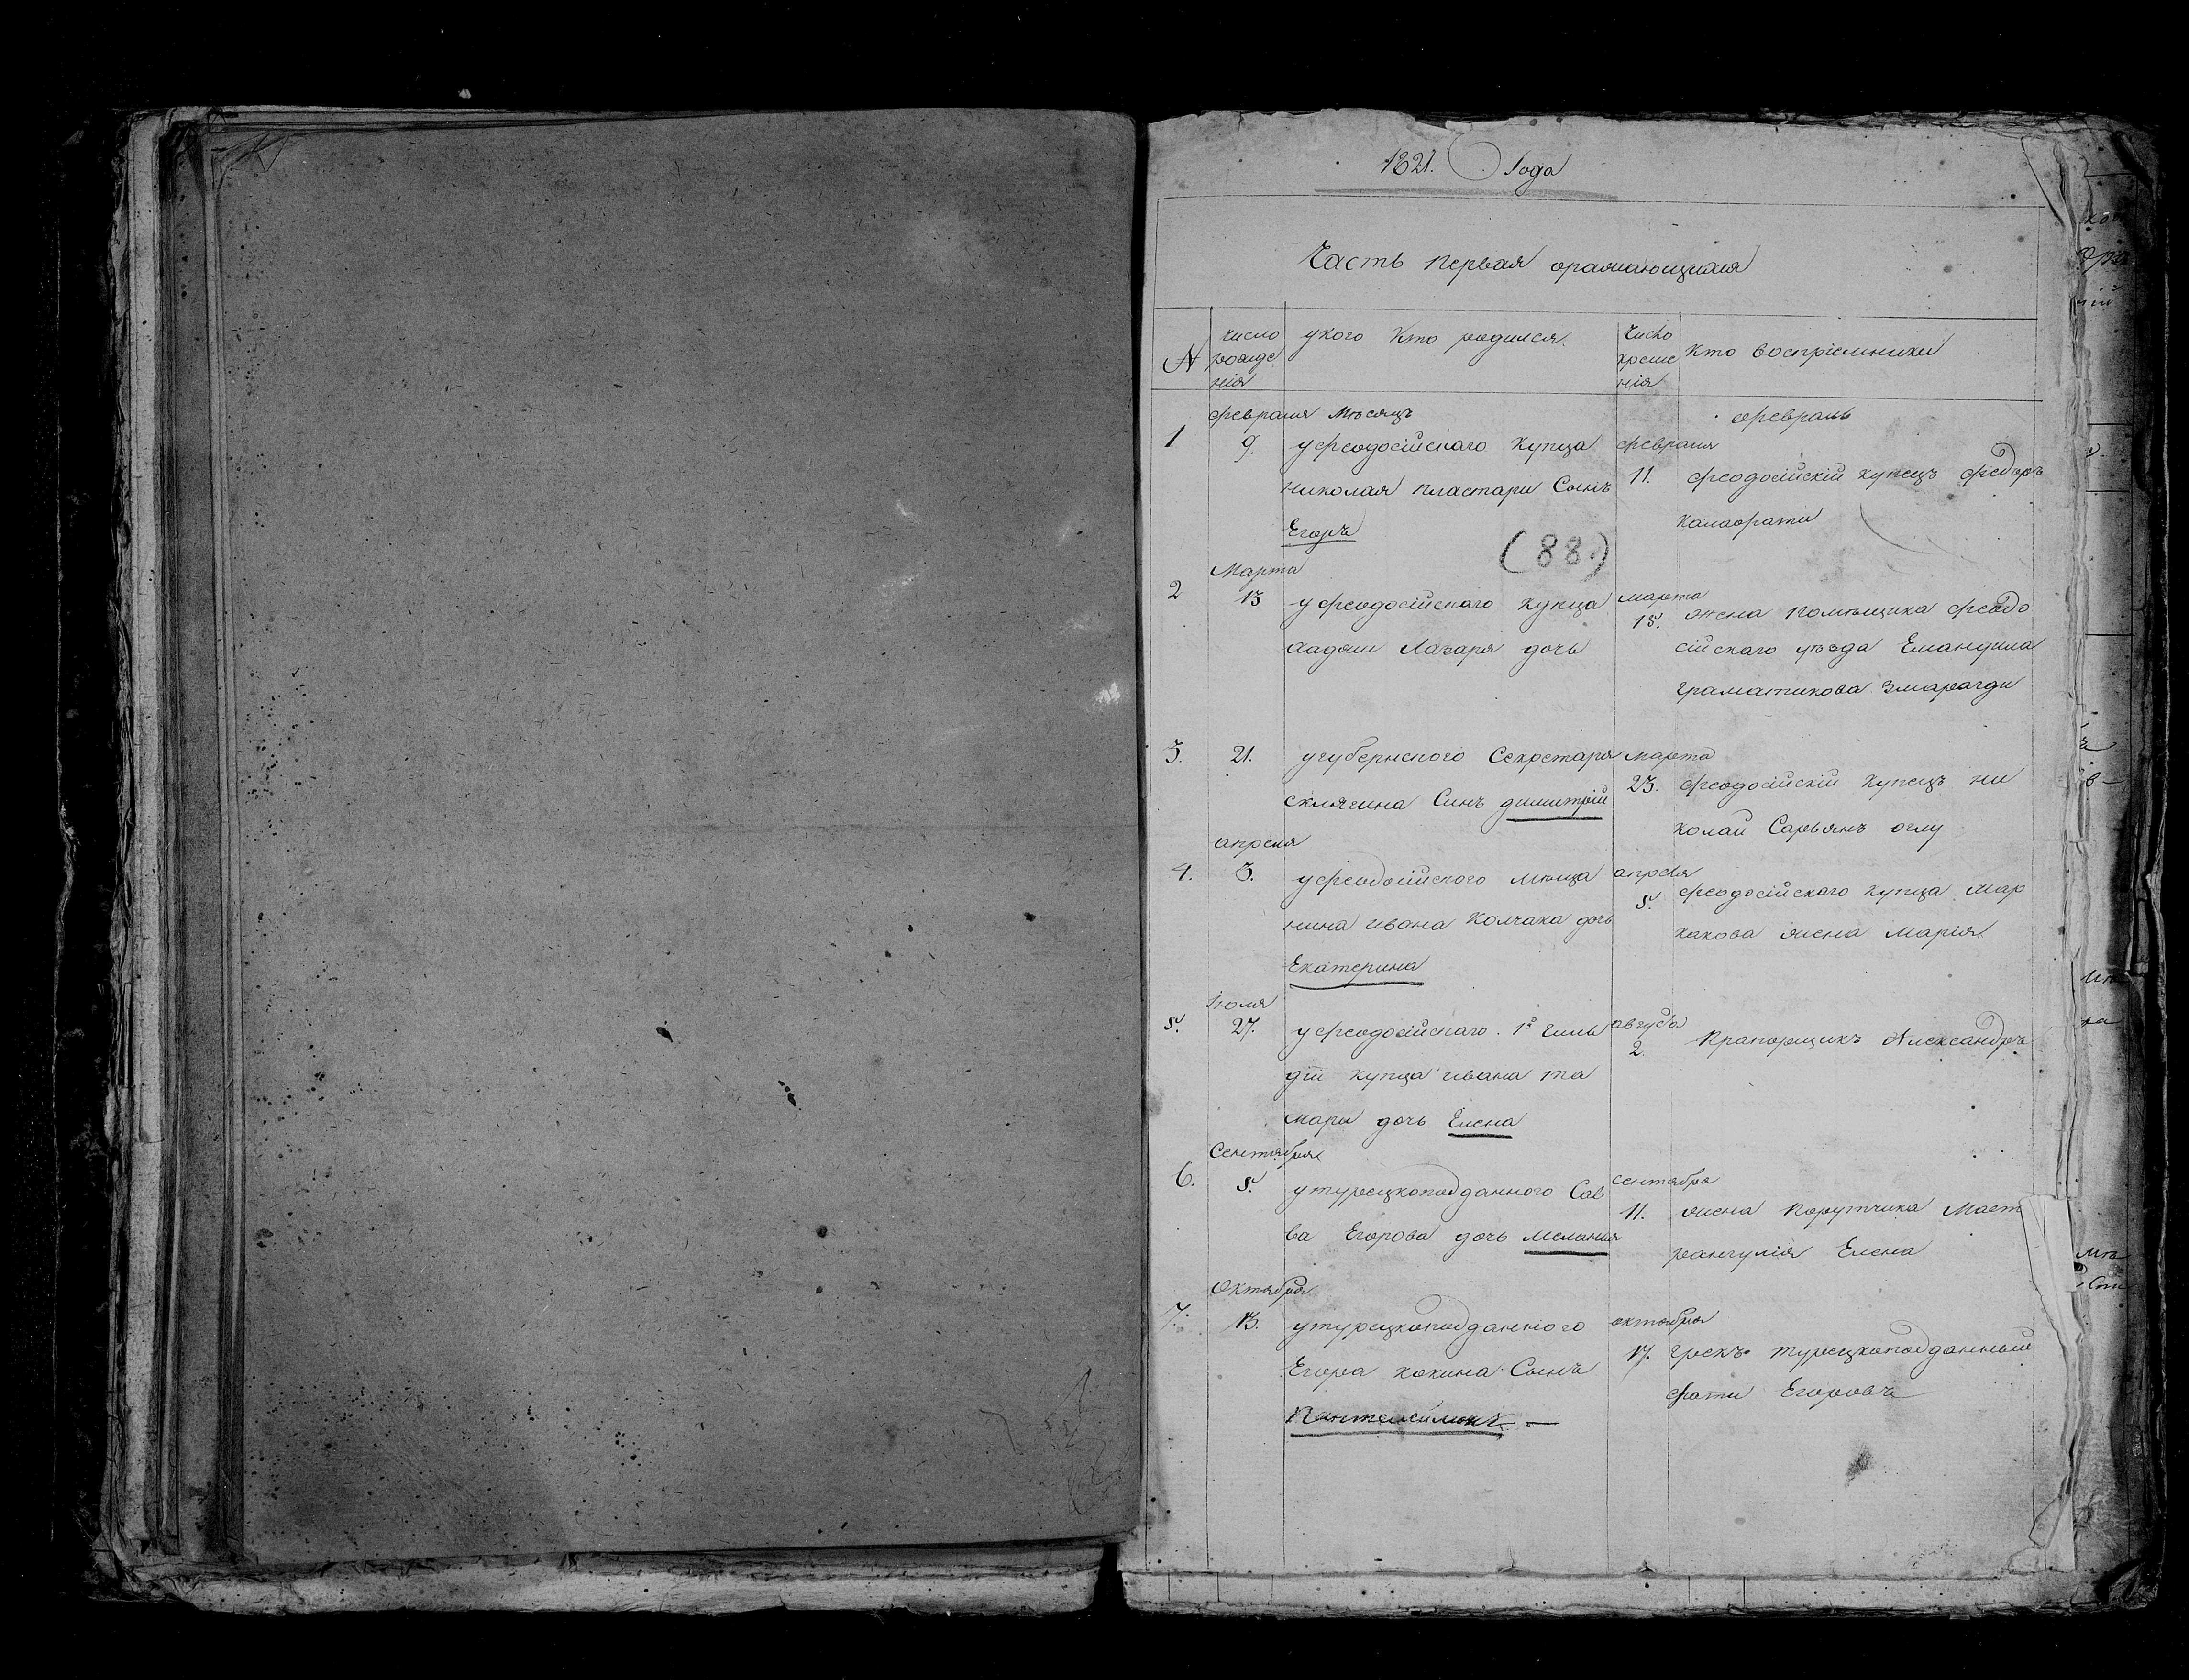 1821. Года
Часть первая ораждающихся
N
число рожде нія
укого Кто родился.
Число креще нія
Кто воспріемники
февраля Мѣсяцъ
февраль
1
9.
уфеодосійскаго Купца
николая пластари Сынъ
Егоръ
февраля
11.
феодосійскій купецъ федоръ
калафати
(88.)
Марта
2
13
уфеодосійскаго купца
Лазаря дочь
марта
15.
жена помѣщика феодо
сійскаго уѣзда Емануила
граматикова Змарагди
3.
21.
угубернского Секретаря
Склягина Синъ димитрій
марта
23.
феодосійскій купецъ ни
колай Сарьянъ оглу
апреля
4.
3.
уфеодосійского мѣща
нина ивана Колчака дочь
Екатерина
апреля
5.
феодосійскаго купца мар
какова жена Марія
Іюля
5.
27.
уфеодосійскаго 1й гиль
дій купца ивана та
мары дочь Елена
августа
2.
Прапорщикъ Александръ
Сентября
6.
5.
утурецкоподданного Сав
ва Егорова дочь мелания
сентября
11.
жена порутчика Маст
рангулія Елена
Октября
7.
13.
утурецкоподданного
Егора кокина Сынъ
Пантелеймонъ
октября
17.
грекъ турецкоподданный
фоти Егоровъ